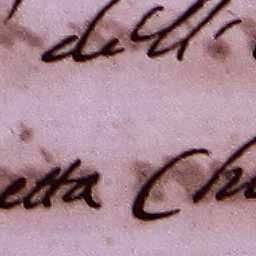 dell'
etta Ch